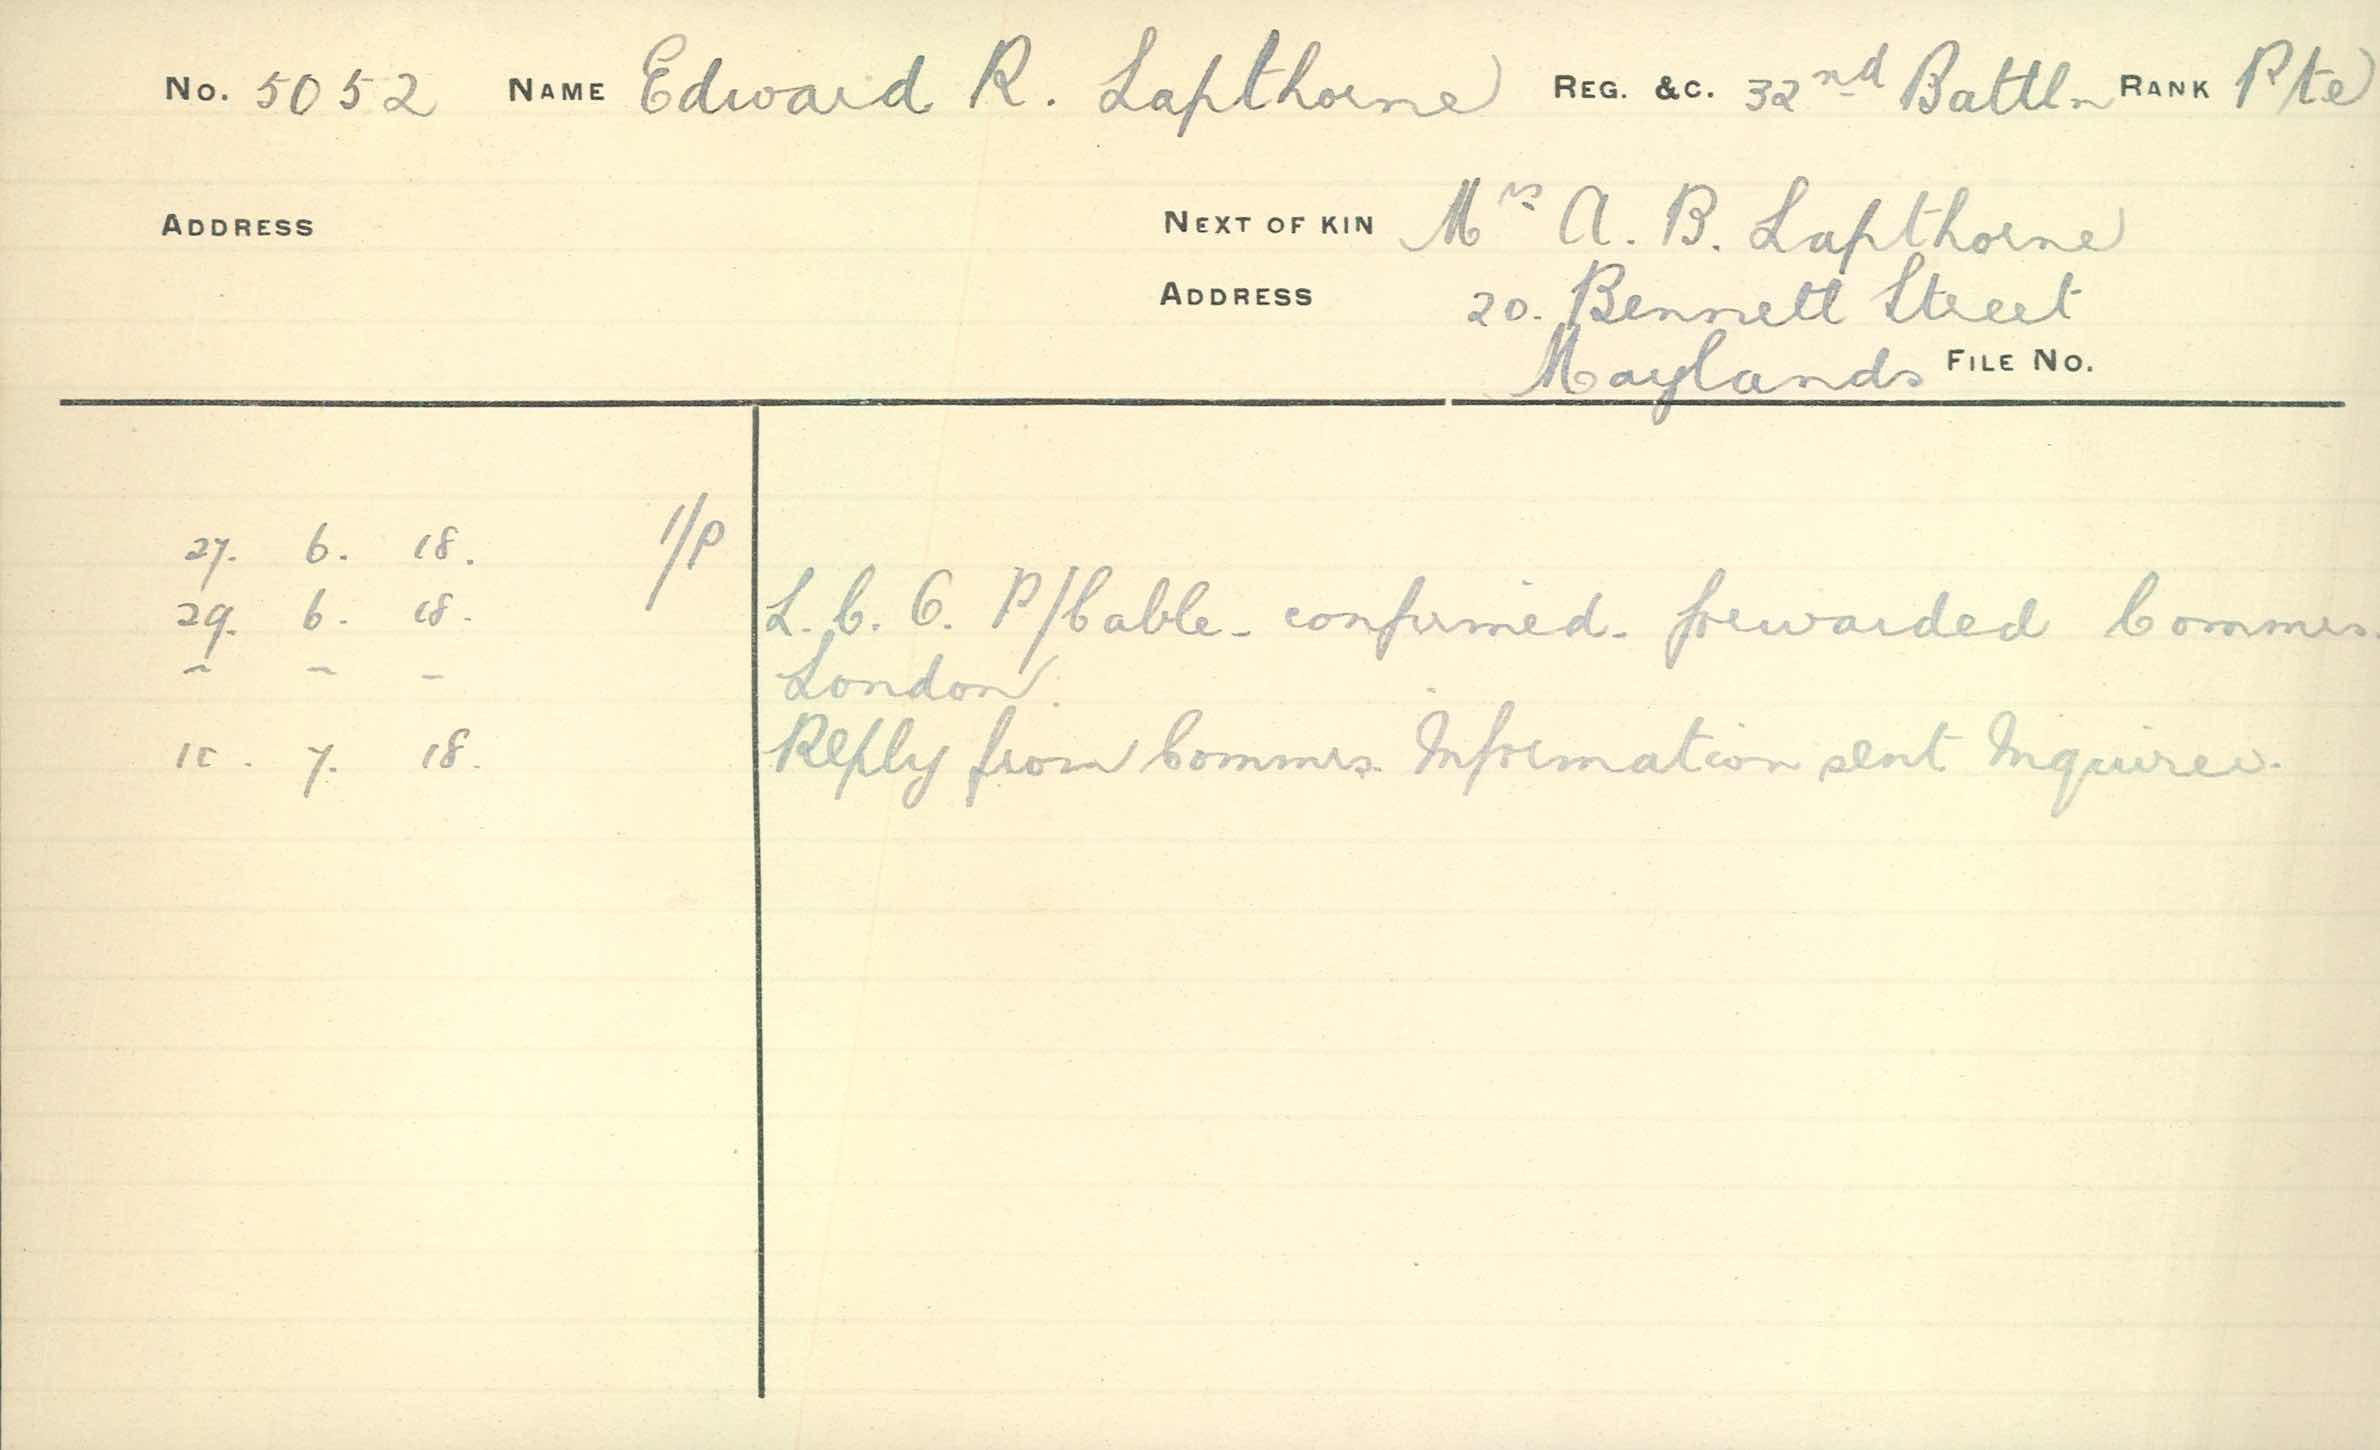 No. 5052 NAME Edward R. Lapthorne REG. &C. 32nd Battln RANK Pte
ADDRESS NEXT OF KIN Mrs A. B. Lapthorne
ADDRESS 20. Bennett Street
Maylands FILE No.
27. 6. 18. 1/P
29. 6. 18. L. C. C. P/Cable - confirmed - forwarded Commrs.
~ ~ - London.
7. 18. Reply from Commrs. Information sent Inquirer.